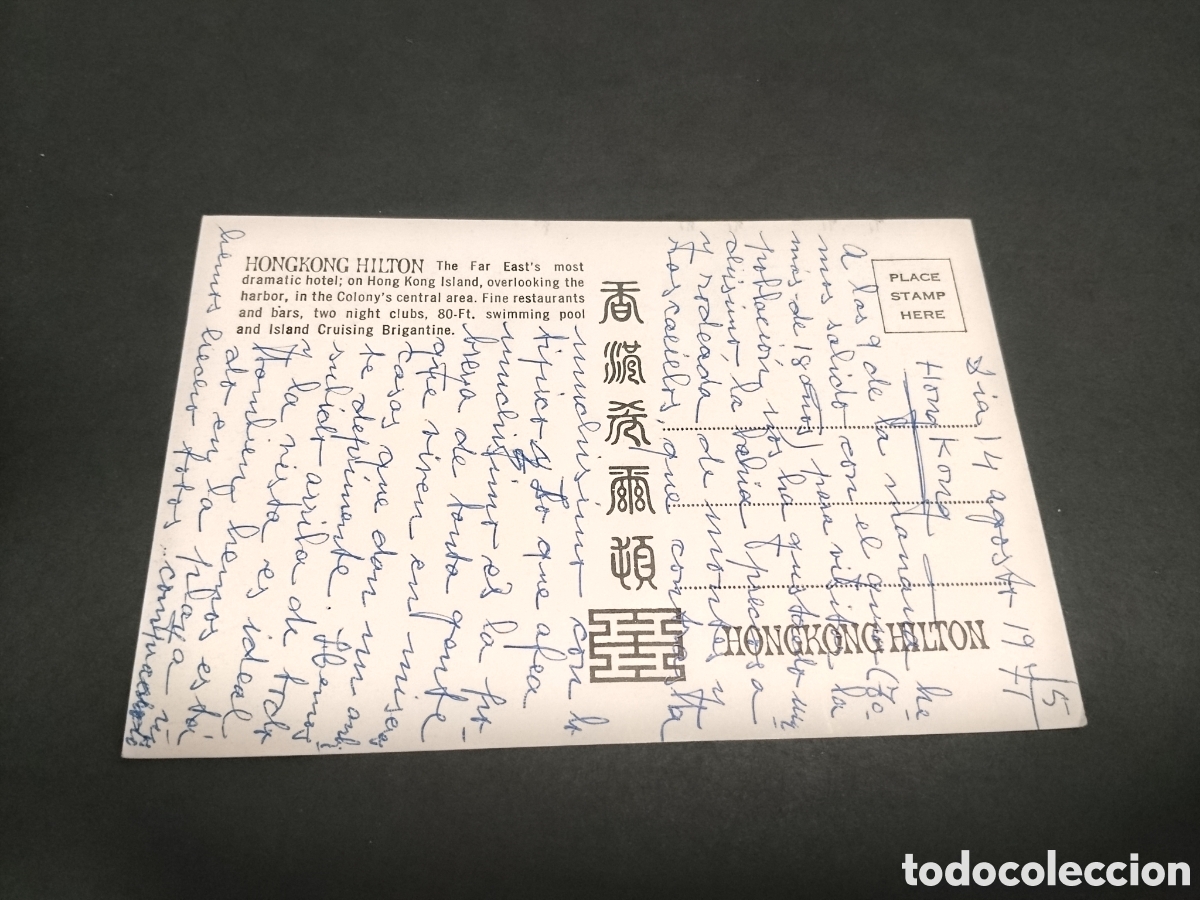 HONGKONG HILTON The Far East's most
dramatic hotel; on Hong Kong Island, overlooking the
harbor, in the Colony's central area. Fine restaurants
and bars, two night clubs, 80-Ft. swimming pool
and Island Cruising Brigantine.
香港希爾頓
PLACE
STAMP
HERE
HONGKONG HILTON
15
Dia 14 agosto 1971
Hong Kong
A las 9 de la mañana he
mos salido con el
más de 18 años) para visitar la
población, nos ha gustado mu
chisimo, la bahia preciosa
y rodeada de montes y
rascacielos que contrasta
muchisimo con lo
tipico y lo que afea
muchisimo es la po
breza de tanta gente
que viven en
casas que dan un
te deprimente. Hemos
subido arriba de todo
y la vista es ideal
Tambien hemos esta
do en la playa y
hemos hecho fotos